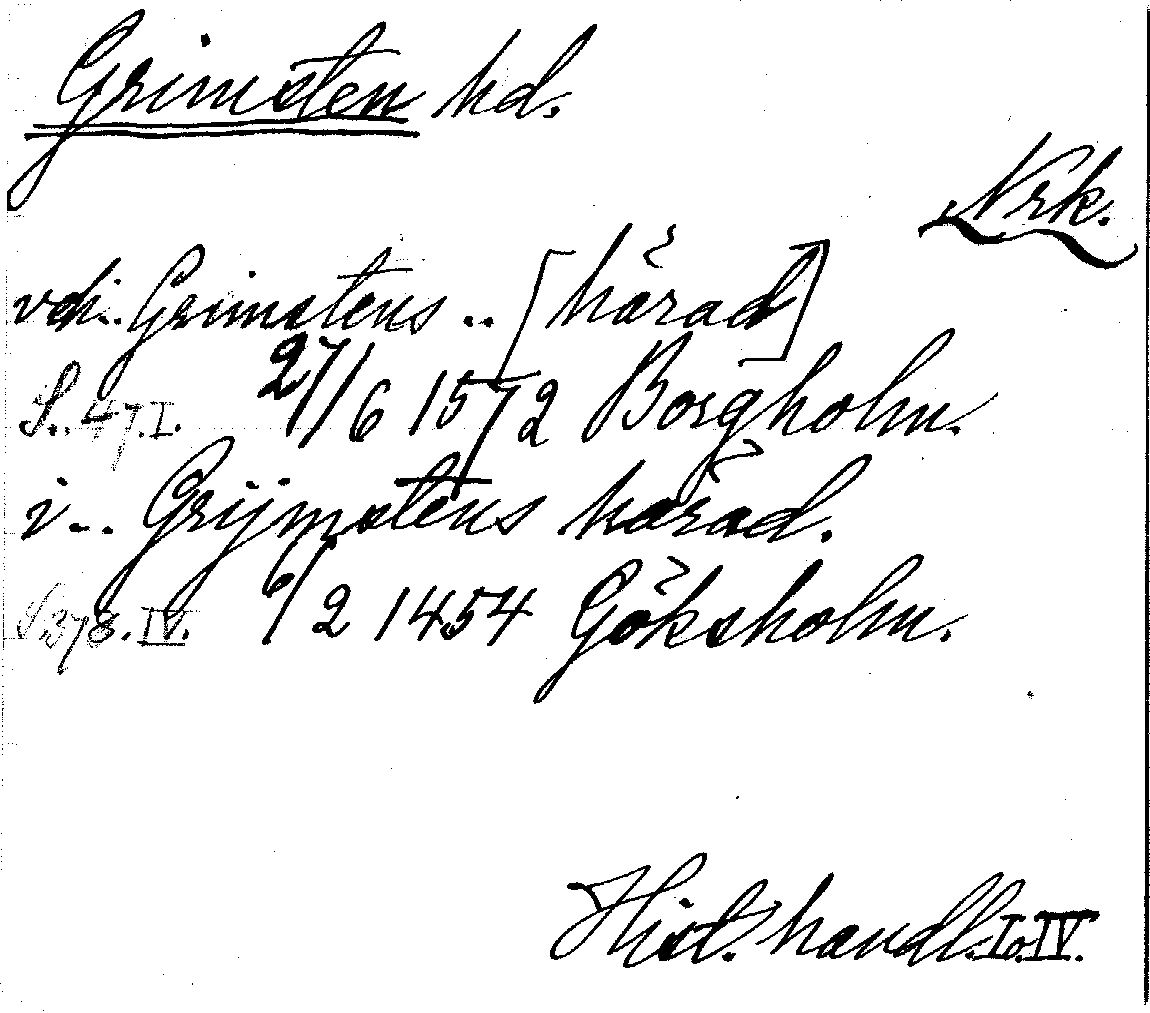 Grimsten hd.
Nrk.
vdi.. Grimstens .. [härad]
S. 47. I. 27/6 1572 Borgholm.
i... Grijmstens härad.
S. 378. IV. 6/2 1454 Göksholm.
Hist. handl. I o. IV.